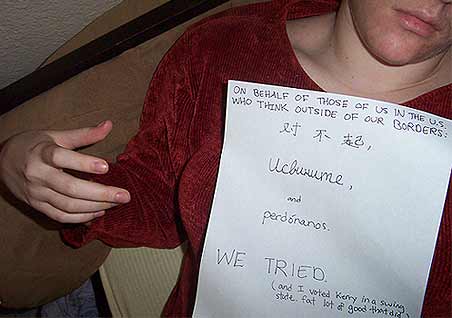 ON BEHALF OF THOSE OF US IN THE U.S.
WHO THINK OUTSIDE OF OUR BORDERS:
对不起,
Исвините,
and
perdónanos.
WE TRIED.
(and I voted Kerry in a swing
state. fat lot of good that did.)